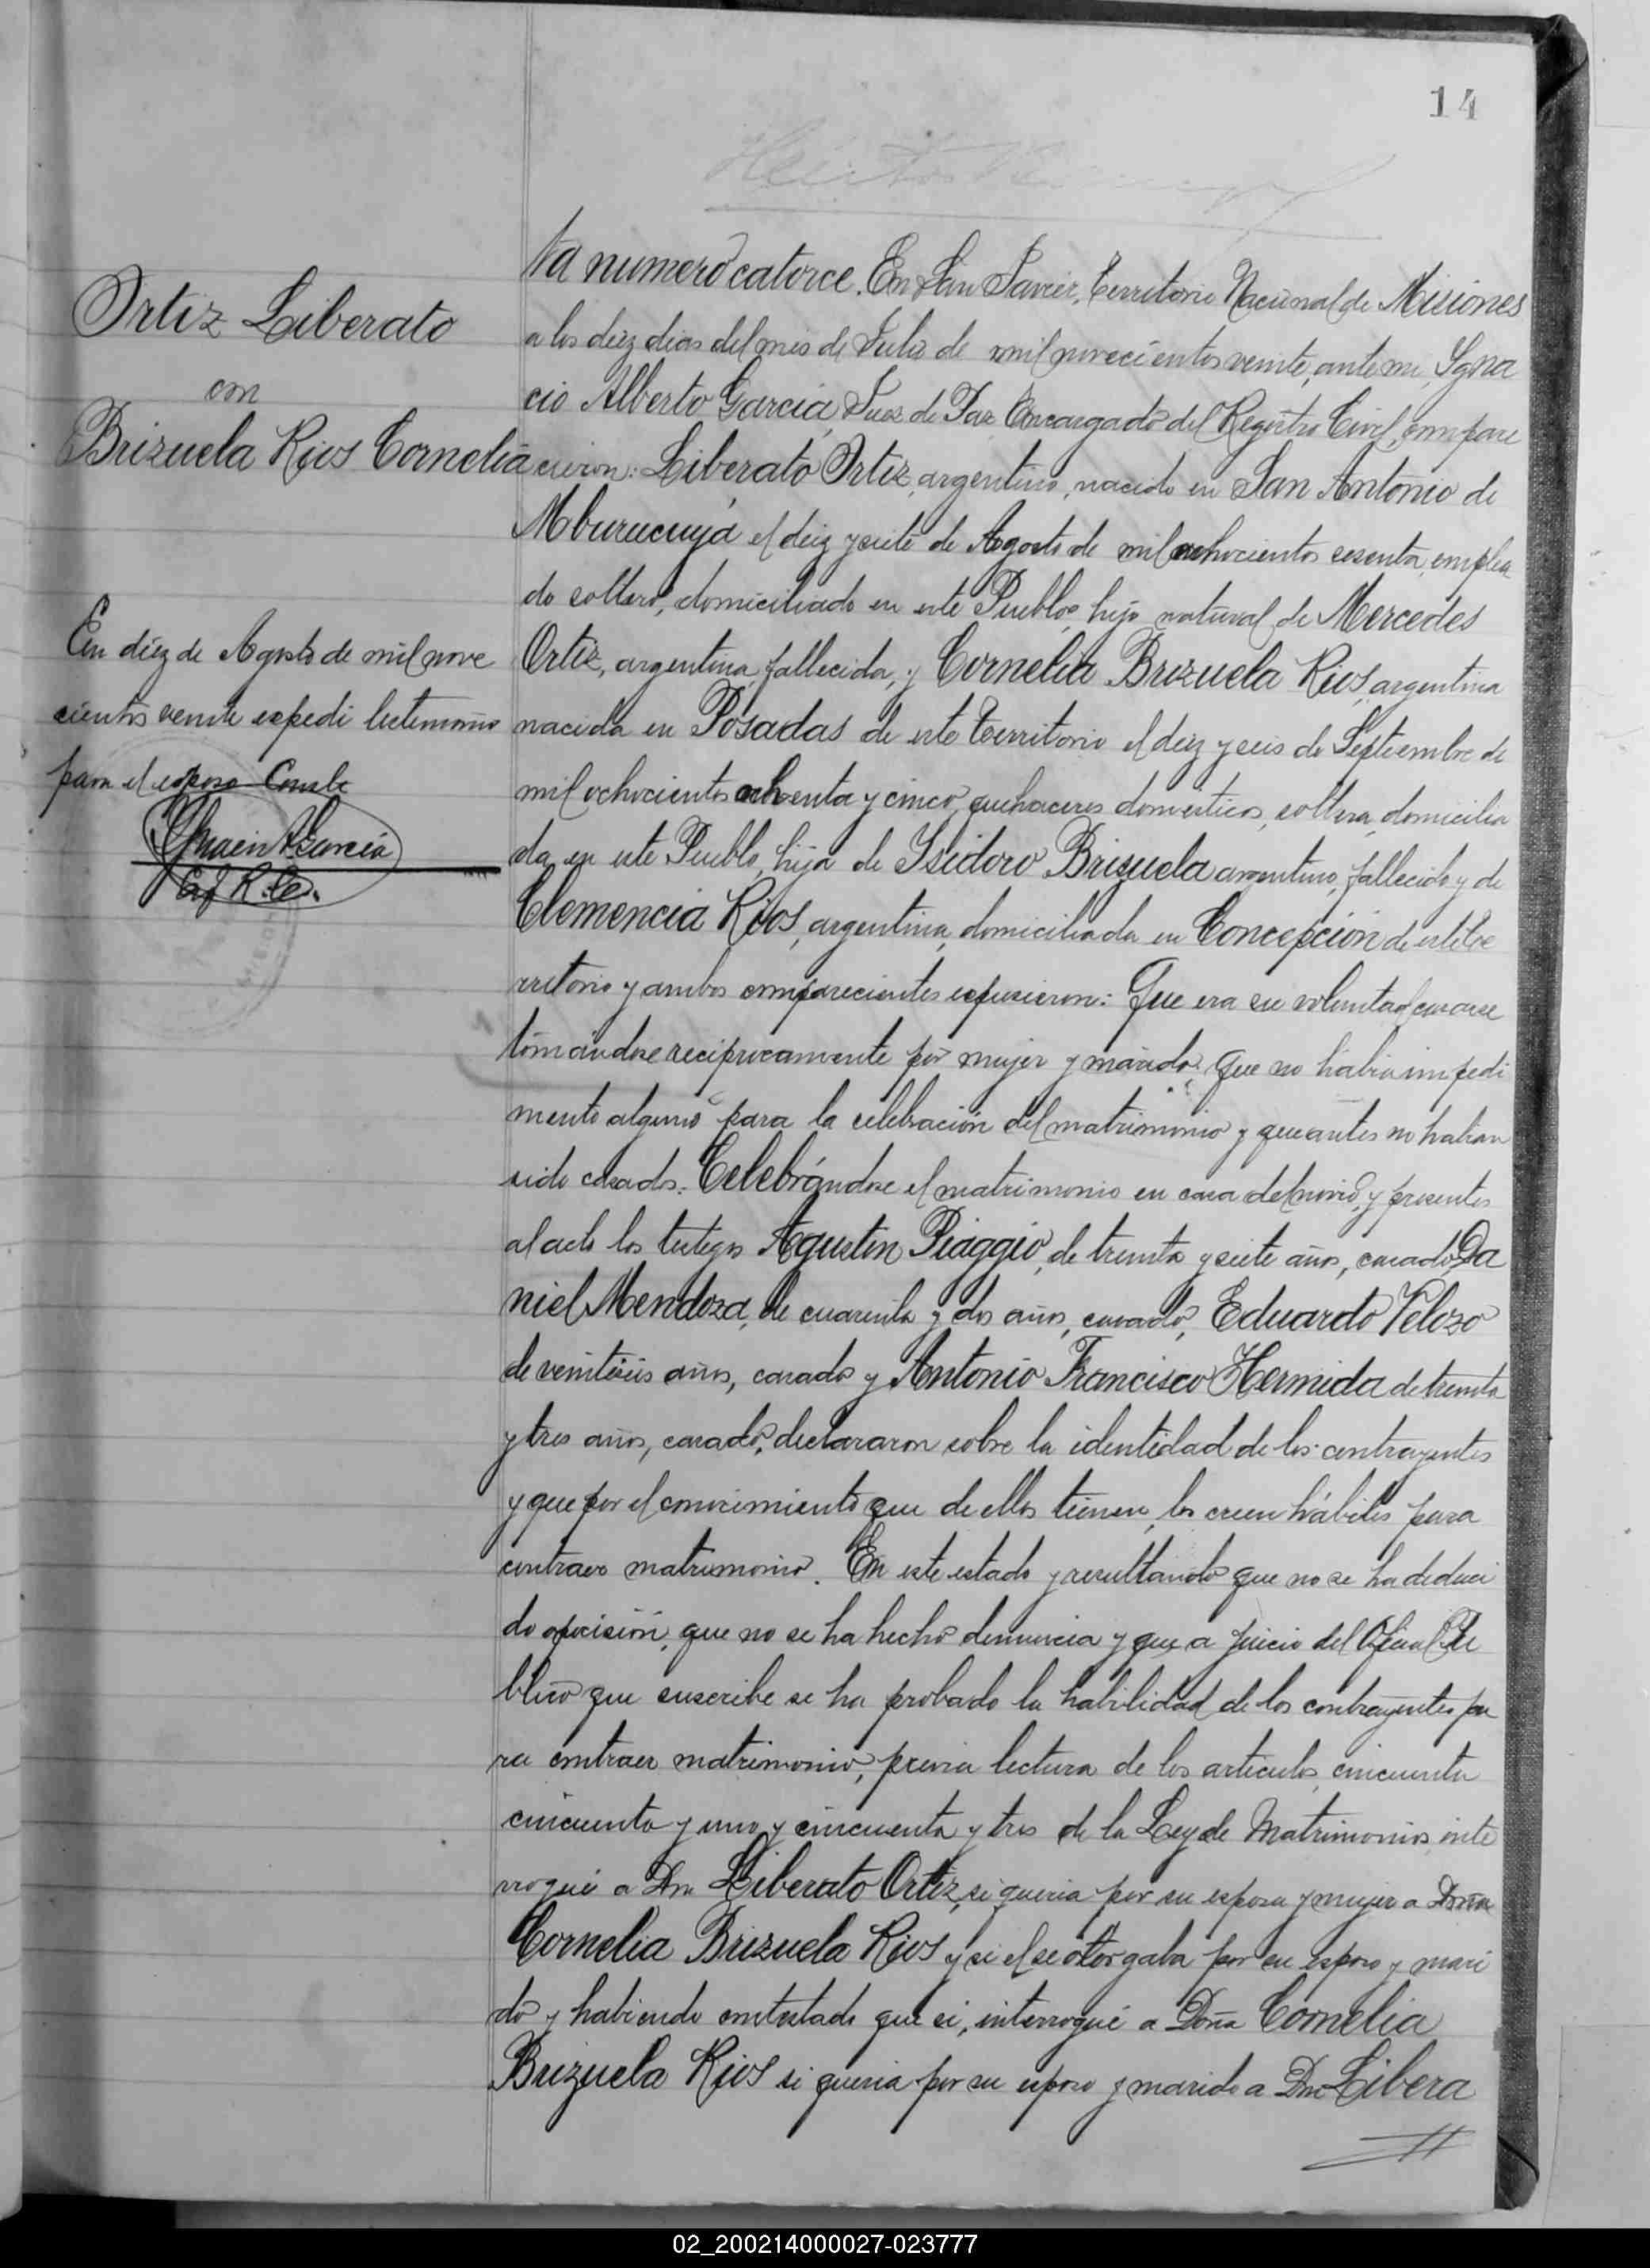 14
Ortiz Liberato
con
Brizuela Rios Cornelia
En diez de Agosto de mil nove
cientos veinte expedi testimonio
para el esposo Conste
Ignacio A. García
Enc. R. C.
ta numero catorce. En San Javier, Territorio Nacional de Misiones
a los diez dias del mes de Julio de mil novecientos veinte, ante mi, Igna
cio Alberto García, Juez de Paz Encargado del Registro Civil, compare
cieron: Liberato Ortiz, argentino, nacido en San Antonio de
Mburucuyá el diez y siete de Agosto de mil ochocientos sesenta, emplea
do soltero, domiciliado en este Pueblo, hijo natural de Mercedes
Ortiz, argentina, fallecida, y Cornelia Brizuela Rios, argentina
nacida en Posadas de este Territorio el diez y seis de Septiembre de
mil ochocientos ochenta y cinco, quehaceres domesticos, soltera, domicilia
da en este Pueblo, hija de Isidoro Brizuela argentino, fallecido y de
Clemencia Rios, argentina, domiciliada en Concepción de este te
rritorio y ambos comparecientes expusieron: Que era su voluntad casarse
tomándose reciprocamente por mujer y marido. Que no habia impedi
mento alguno para la celebración del matrimonio y que antes no habian
sido casados. Celebrándose el matrimonio en casa del novio, y presentes
al acto los testigos Agustín Piaggio, de treinta y siete años, casado, Da
niel Mendoza, de cuarenta y dos años, casado, Eduardo Velozo
de veintiseis años, casado y Antonio Francisco Hermida de treinta
y tres años, casado, declararon sobre la identidad de los contrayentes
y que por el conocimiento que de ellos tienen, los creen hábiles para
contraer matrimonio. En este estado y resultando que no se ha deduci
do oposición, que no se ha hecho denuncia y que a juicio del Oficial Pu
blico que suscribe se ha probado la habilidad de los contrayentes pa
ra contraer matrimonio, previa lectura de los articulos cincuenta
cincuenta y uno y cincuenta y tres de la Ley de Matrimonios, inte
rrogué a Dn. Liberato Ortiz, si queria por su esposa y mujer a Doña
Cornelia Brizuela Rios y si el se otorgaba por su esposo y mari
do y habiendo contestado que si, interrogué a Doña Cornelia
Brizuela Rios si queria por su esposo y marido a Dn. Libera
02_200214000027-023777